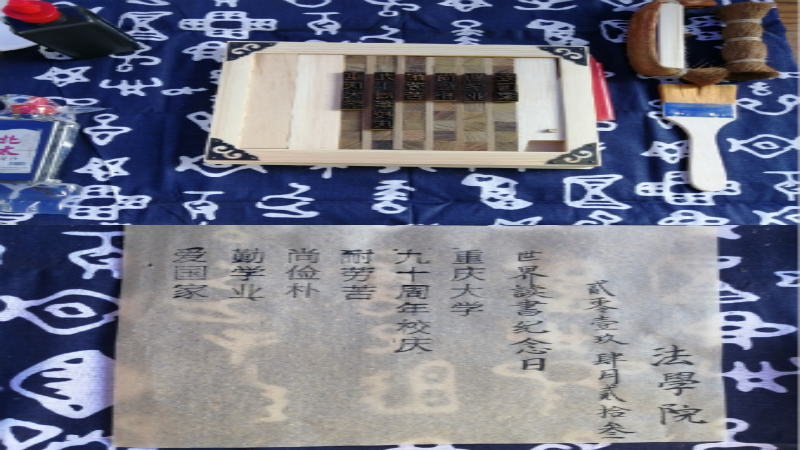 法學院
貳零壹玖肆月貳拾叁
世界读書纪念日
重庆大学
九十周年校庆
耐劳苦
尚俭朴
勤学业
爱国家